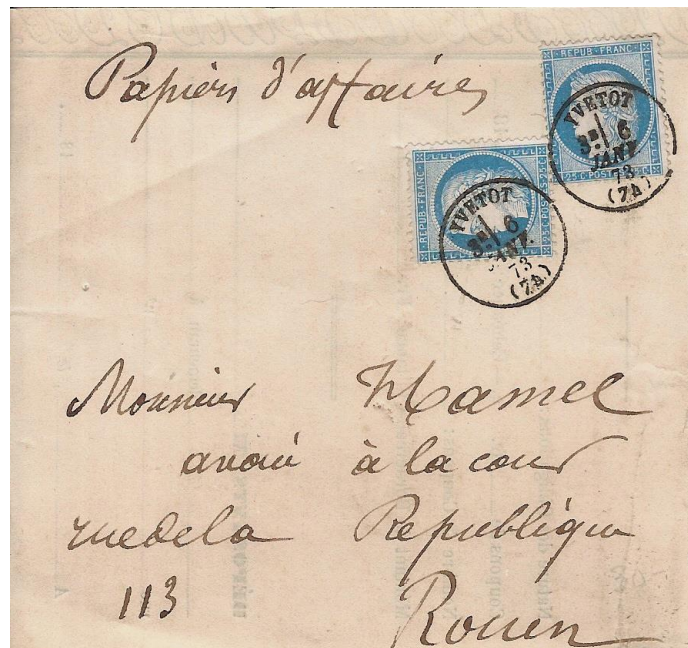 Papiers d'affaires
REPUB·FRANC·
25·C·POSTES·25·C
YVETOT
3E 6
JANV.
73
(74)
REPUB·FRANC·
25·C·POSTES·25·C
YVETOT
3E 6
JANV.
73
(74)
Monsieur Hamel
avoué à la cour
rue de la Republique
113 Rouen